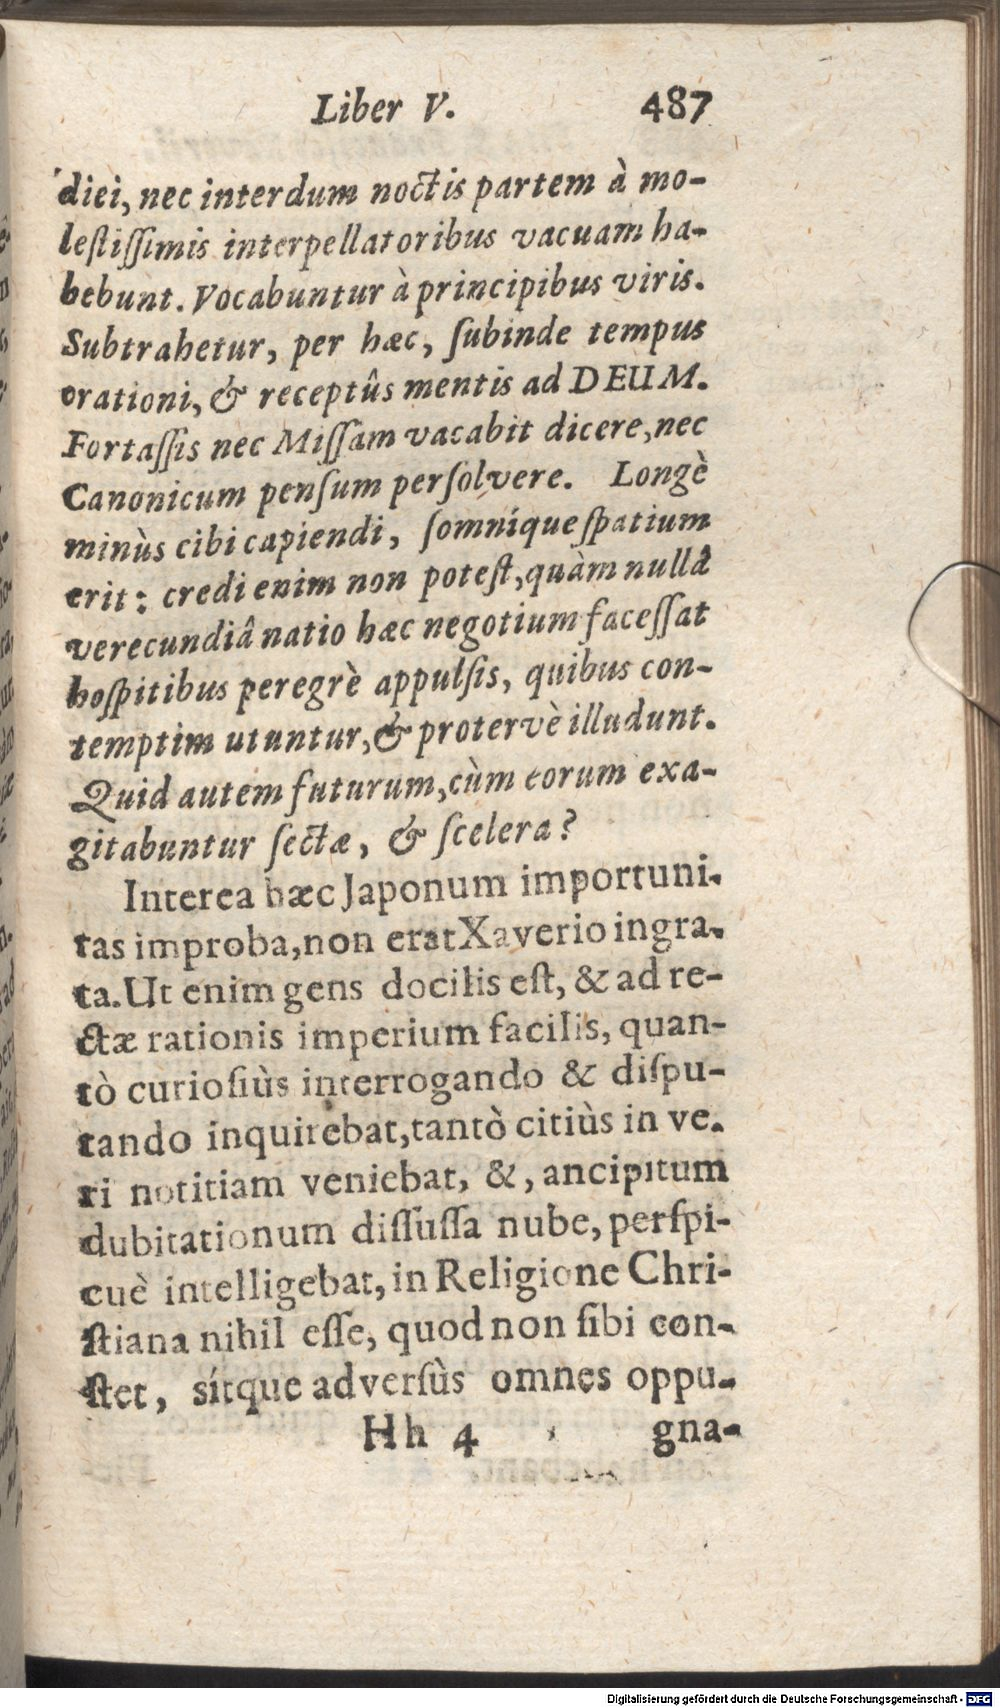 Liber V. 487
diei, nec interdum noctis partem à mo-
leſtiſſimis interpellatoribus vacuam ha-
bebunt. Vocabuntur à principibus viris.
Subtrahetur, per hæc, ſubinde tempus
orationi, & receptûs mentis ad DEUM.
Fortaſſis nec Miſſam vacabit dicere, nec
Canonicum penſum perſolvere. Longè
minùs cibi capiendi, ſomníque ſpatium
erit: credi enim non poteſt, quàm nullâ
verecundiâ natio hæc negotium faceſſat
hoſpitibus peregrè appulſis, quibus con-
temptim utuntur, & protervè illudunt.
Quid autem futurum, cùm eorum exa-
gitabuntur ſectæ, & ſcelera?
Interea hæc Japonum importuni-
tas improba, non erat Xaverio ingra-
ta. Ut enim gens docilis eſt, & ad re-
ctæ rationis imperium facilis, quan-
tò curioſiùs interrogando & diſpu-
tando inquirebat, tantò citiùs in ve-
ri notitiam veniebat, &, ancipitum
dubitationum diſſuſſa nube, perſpi-
cuè intelligebat, in Religione Chri-
ſtiana nihil eſſe, quod non ſibi con-
ſtet, sítque adverſùs omnes oppu-
Hh 4 gna-
Digitalisierung gefördert durch die Deutsche Forschungsgemeinschaft - DFG